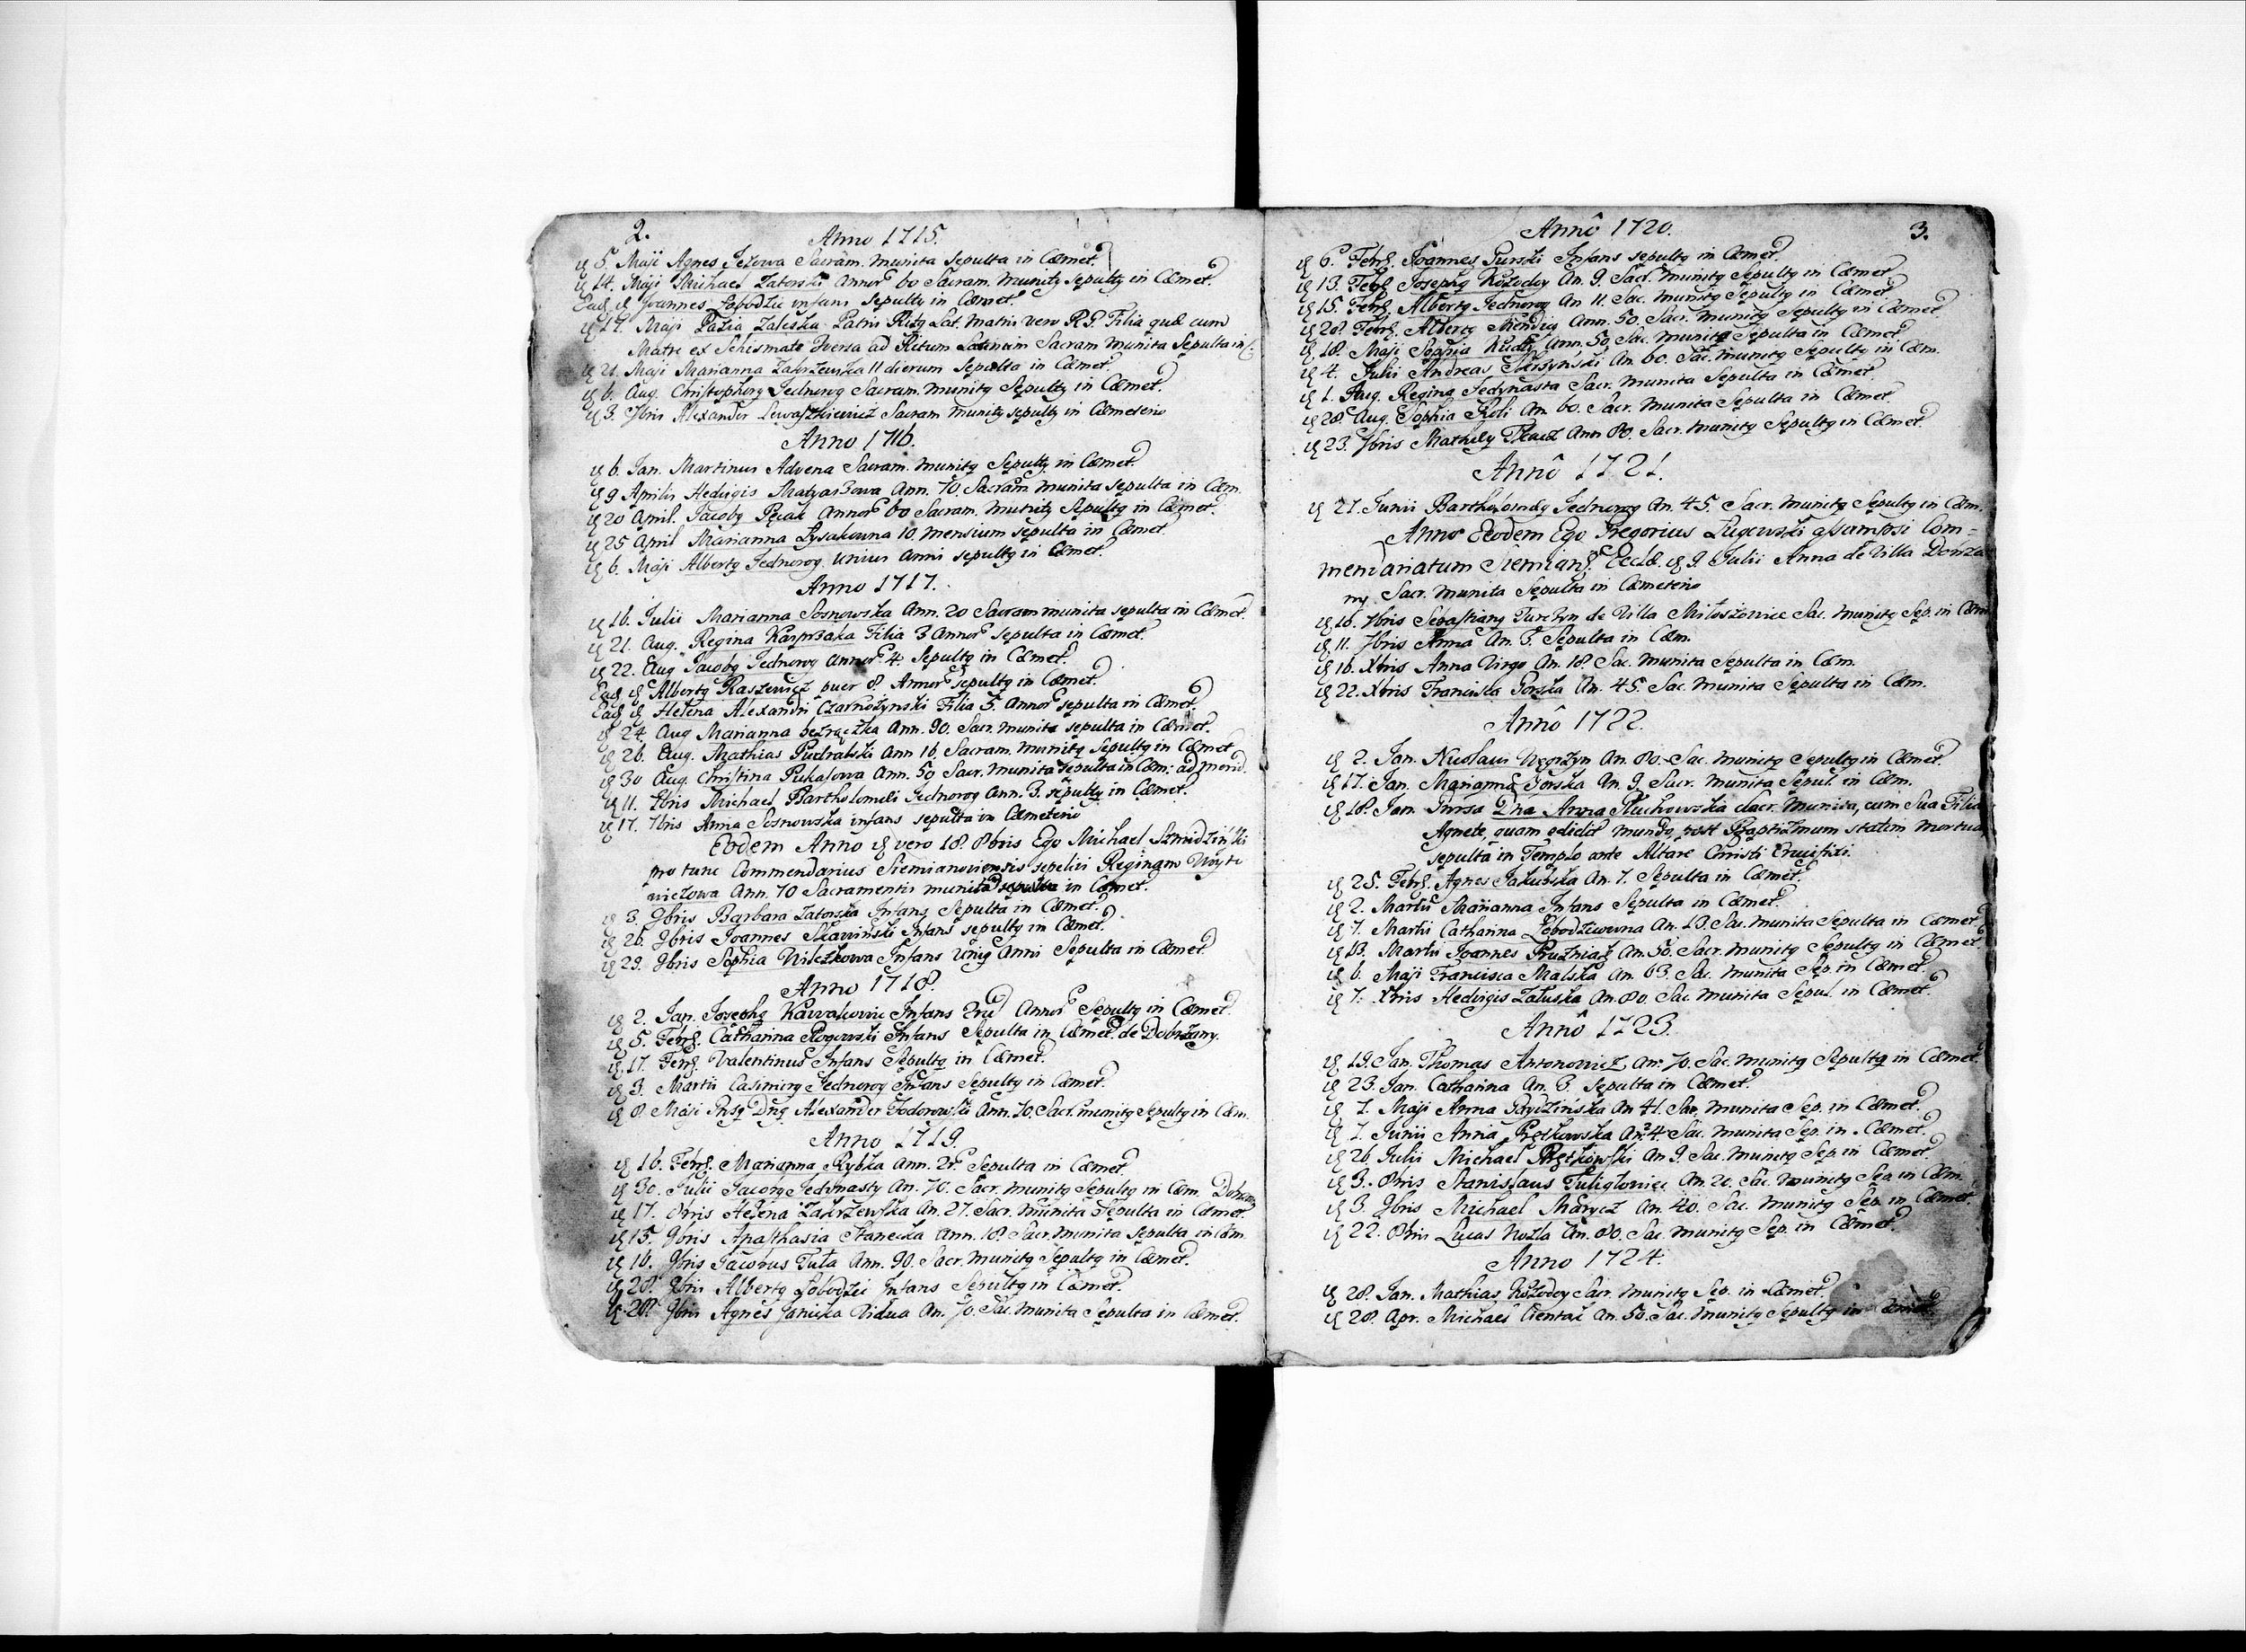 2.
Anno 1715.
5. Maji Agnes Jeżowa Sacram. munita Sepulta in Cœmet.
14. Maji Michael Zatorski Annor 60 Sacram. munitꝯ sepultꝯ in Cœmet.
Ead Joannes Łobodzic infans sepultꝯ in Cœmet.
17. Maji Pazia Zaleska Patris Ritꝯ Lat. Matris vero R. G. Filia quæ cum
Matre ex Schismate versa ad Ritum Latinum Sacram munita Sepulta in C.
21. Maji Marianna Zakrzewska 11 dierum Sepulta in Cœmet.
6. Aug. Christophorꝯ Jednorog Sacram. munitꝯ Sepultꝯ in Cœmet.
3. 7bris Alexander Lewaszkiewicz Sacram munitꝯ sepultꝯ in Cœmeterio
Anno 1716.
6. Jan. Martinus Advena Sacram. munitꝯ Sepultꝯ in Cœmet.
9 Aprilis Hedvigis Matyaszowa Ann. 70 Sacram munita sepulta in Cœm.
20 April. Jacobꝯ Pęcak Annor 60 Sacram. munitꝯ Sepultꝯ in Cœmet.
25 April Marianna Łysakowna 10 mensium sepulta in Cœmet.
6. Maji Albertꝯ Jednorog unius anni sepultꝯ in Cœmet.
Anno 1717.
16. Julii Marianna Sosnowska Ann. 20 Sacram munita sepulta in Cœmet.
21. Aug. Regina Kasprzaka Filia 3 Annor sepulta in Cœmet.
22. Aug Jacobꝯ Jednorog Annor 4 Sepultꝯ in Cœmet.
Ead Albertꝯ Raszewicz puer 8. Annor sepultꝯ in Cœmet.
Ead Helena Alexandri Czarnożynski Filia 5. Annor sepulta in Cœmet.
24. Aug Marianna bezrączka Ann. 90. Sacr. munita sepulta in Cœmet.
26. Aug. Mathias Pudralski Ann 16 Sacram. munitꝯ Sepultꝯ in Cœmet
30 Aug. Christina Pukasowa Ann. 50 Sacr. munita sepulta in Cœm: ad merid.
11. 7bris Michael Bartholomei Jednorog Ann. 3. sepultꝯ in Cœmet.
17. 7bris Anna Sosnowska infans sepulta in Cœmeterio
Eodem Anno vero 18. 8bris Ego Michael Szmidziński
pro tunc Commendarius Siemianoviensis sepelivi Reginam Woyte
wiczowa Ann. 70 Sacramentis munita in Cœmet.
8. 9bris Barbara Zatorska Infans Sepulta in Cœmet.
26. 9bris Joannes Skawiński Infans sepultꝯ in Cœmet.
29. 9bris Sophia Wilczkowa Infans uniꝯ Anni Sepulta in Cœmet
Anno 1718.
2. Jan. Josephꝯ Kawalowic Infans Annor Sepultꝯ in Cœmet.
5. Febr. Catharina Rogowski Infans Sepulta in Cœmet. de Dobrzany.
17. Febr. Valentinus Infans Sepultꝯ in Cœmet.
3. Martii Casimirꝯ Jednorog Infans Sepultꝯ in Cœmet.
8 Maji Dnꝯ Alexander Todorowski Ann. 70. Sacr. munitꝯ Sepultꝯ in Cœm.
Anno 1719.
16. Febr. Marianna Rybka Ann. Sepulta in Cœmet.
30. Julii Jacobꝯ Jedynasty An. 70. Sacr. munitꝯ Sepultꝯ in Cœm.
17. 8bris Helena Zakrzewska An. 27. Sacr. munita Sepulta in Cœmet.
15. 9bris Anasthasia Stanecka Ann. 18. Sacr. munita sepulta in Cœm.
16. 9bris Jacobus Tuła Ann. 90. Sacr. munitꝯ Sepultꝯ in Cœmet.
28. 9bris Albertꝯ Łobodzic Infans Sepultꝯ in Cœmet.
28. 9bris Agnes Janicka Vidua An. 70. Sac. munita Sepulta in Cœmet.
Annô 1720.
3.
6. Febr. Joannes Gurski Infans sepultꝯ in Cœmet.
13. Febr. Josephꝯ Kołodey An. 9. Sacr. munitꝯ Sepultꝯ in Cœmet.
15. Febr. Albertꝯ Jednorog An 11. Sac. munitꝯ Sepultꝯ in Cœmet.
28. Febr. Albertꝯ Mendzig Ann. 50. Sacr. munitꝯ Sepultꝯ in Cœmet.
18. Maji Sophia Kudła Ann. 50 Sac. munita Sepulta in Cœmet.
4. Julii Andreas Skrzyński An. 60. Sac. munitꝯ Sepultꝯ in Cœm.
1. Aug. Regina Jedynasta Sacr. munita Sepulta in Cœmet.
28. Aug. Sophia Roli An 60. Sacr. munita Sepulta in Cœmet
23. 7bris Matheꝯ Tkacz Ann 80. Sacr. munitꝯ Sepultꝯ in Cœmet.
Annô 1721.
21. Junii Bartholomeꝯ Jednorog An. 45. Sacr. munitꝯ Sepultꝯ in Cœm.
Anno Eodem Ego Gregorius Ługowski assumpsi Com=
mendariatum Siemian. Eccle. 9. Julii Anna de Villa Dobrza
ny Sacr. munita Sepulta in Cœmeterio
16. 7bris Sebastianꝯ Turczyn de Villa Miłoszowice Sac. munitꝯ Sep. in Cœm
11. 7bris Anna An. 3. Sepulta in Cœm.
16. Xbris Anna Virgo An. 18. Sac. munita Sepulta in Cœm.
22. Xbris Francisca Gorska An. 45. Sac. munita Sepulta in Cœm.
Annô 1722.
2. Jan. Nicolaus Węgrzyn An. 80. Sac. munitꝯ Sepultꝯ in Cœmet.
17. Jan. Marianna Gorska An. 9. Sacr. munita Sepul. in Cœm.
18. Jan. Dna Anna Słuchowska Sacr. munita, cum Sua Filia
Agnete, quam edidit mundo, post Baptizmum statim mortua
sepulta in Templo ante Altare Christi Crucifixi.
25. Febr. Agnes Jakubska An. 7. Sepulta in Cœmet.
2. Martii Marianna Infans Sepulta in Cœmet.
7. Martii Catharina Łobodziowna An. 13. Sac. munita Sepulta in Cœmet
13. Martii Joannes Pruzniak An. 50. Sacr. munitꝯ Sepultꝯ in Cœmet.
6. Maji Francisca Malska An. 63. Sac. munita Sep. in Cœmet.
7. Xbris Hedvigis Załuska An. 80. Sac. munita Sepul. in Cœmet.
Annô 1723.
19. Jan. Thomas Antonowicz An. 70. Sac. munitꝯ Sepultꝯ in Cœmet.
23. Jan. Catharina An. 3. Sepulta in Cœmet.
7. Maji Anna Gaydzińska An 41. Sac. munita Sep. in Cœmet.
1. Junii Anna Prętkowska An. 4. Sac. munita Sep. in Cœmet.
26 Julii Michael Prętkowski An 9. Sac. munitꝯ Sep. in Cœmet.
3. 8bris Stanislaus Tuligłowiec An. 20. Sac. munitꝯ Sep. in Cœm.
3. 9bris Michael Marycz An. 40. Sac. munitꝯ Sep. in Cœmet.
22. 8bris Lucas Kozla An. 80. Sac. munitꝯ Sep. in Cœmet.
Anno 1724.
28. Jan. Mathias Kołodey Sacr. munitꝯ Sep. in Cœmet.
28. Apr. Michael Cientak An. 50. Sac. munitꝯ Sepultꝯ in Cœmet.